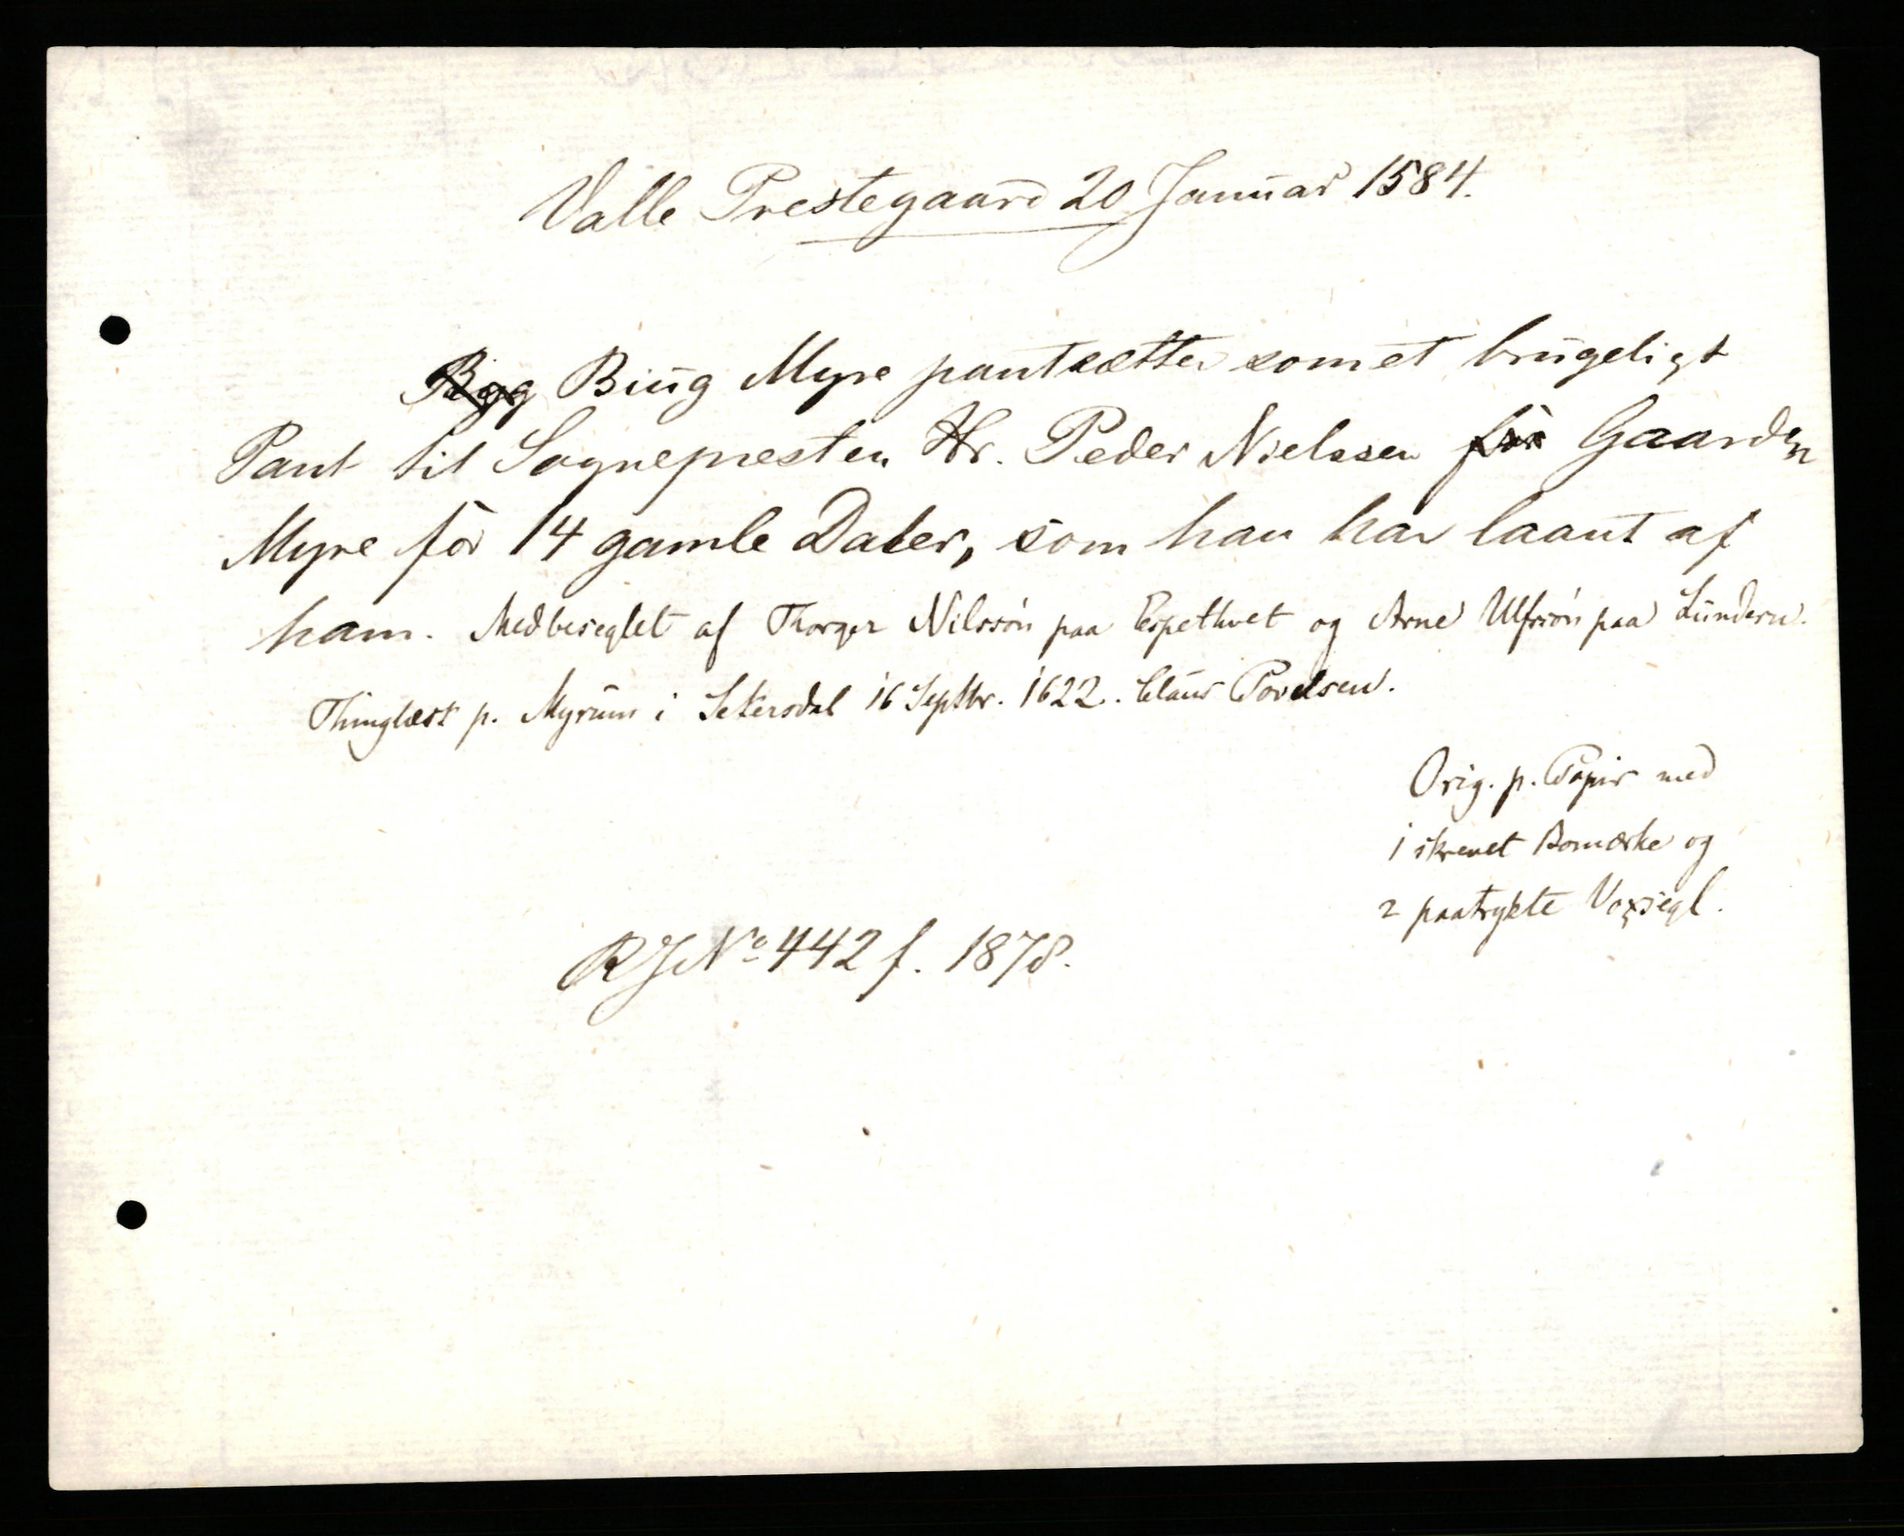 Valle Prestegaard 20 Januar 1584.
Biug Myre pantsætter som et brugeligt
Pant til Sognepresten Hr. Peder Nielssen for Gaarden
Myre for 14 gamle Daler, som han har laant af
ham. Medbeseglet af Thorger Nilssøn paa Espethvet og Arne Ulfssøn paa Lundern.
Thinglæst p. Myrum i Setersdal 16 Septbr. 1622. Claus Povelsen.
Orig. p. Papir med
1 skrevet Bomærke og
2 paatrykte Voxsegl.
RJ No 442 f. 1878.